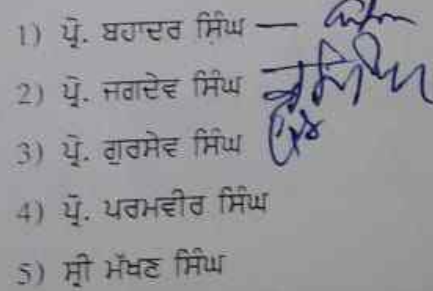 1) ਪ੍ਰੋ. ਬਹਾਦਰ ਸਿੰਘ —
2) ਪ੍ਰੋ. ਜਗਦੇਵ ਸਿੰਘ
3) ਪ੍ਰੋ. ਗੁਰਸੇਵ ਸਿੰਘ
4) ਪ੍ਰੋ. ਪਰਮਵੀਰ ਸਿੰਘ
5) ਸ੍ਰੀ ਮੱਖਣ ਸਿੰਘ